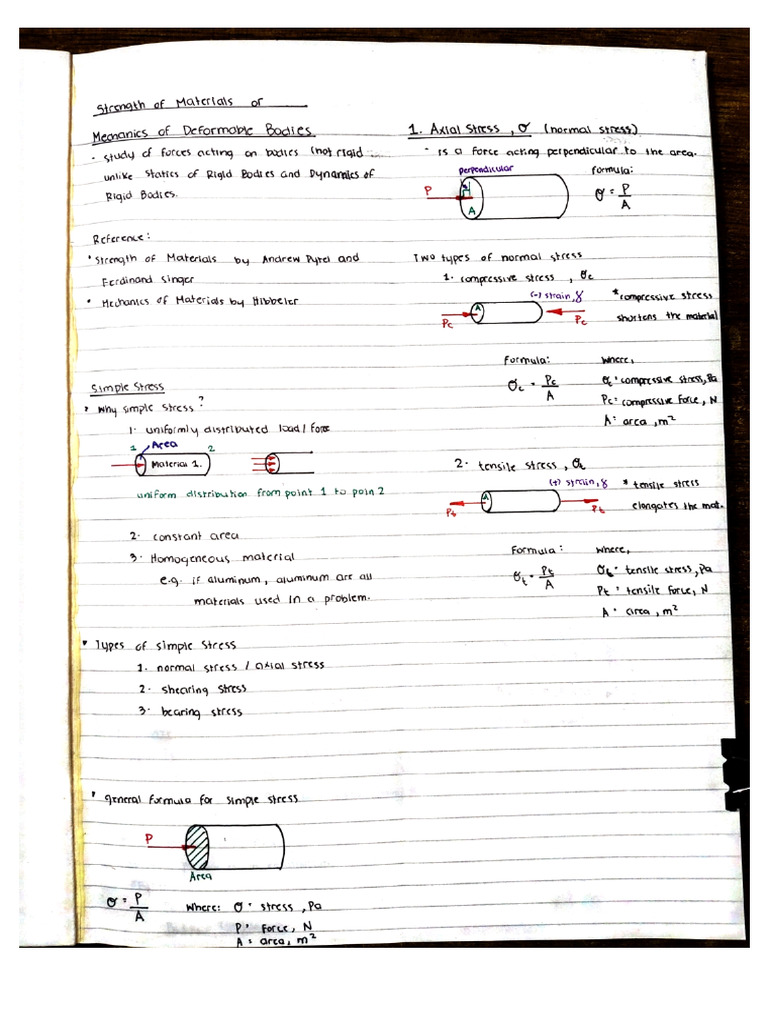 Strength of Materials or
Mechanics of Deformable Bodies
- study of forces acting on bodies (not rigid
unlike Statics of Rigid Bodies and Dynamics of
Rigid Bodies.
Reference:
• Strength of Materials by Andrew Pytel and
Ferdinand Singer
• Mechanics of Materials by Hibbeler
Simple Stress
• Why simple stress?
1. uniformly distributed load / force
1 Area 2
Material 1.
uniform distribution from point 1 to poin 2
2. constant area
3. Homogeneous material
e.g. if aluminum, aluminum are all
materials used in a problem.
• Types of simple stress
1. normal stress / axial stress
2. shearing stress
3. bearing stress
• general formula for simple stress
P
Area
σ = P/A
Where: σ = stress, Pa
P = Force, N
A = area, m²
1. Axial Stress, σ (normal stress)
- is a force acting perpendicular to the area.
perpendicular
P
A
Formula:
σ = P/A
Two types of normal stress
1. compressive stress, σc
(-) strain, γ
A
Pc Pc
* compressive stress
shortens the material
Formula:
σc = Pc/A
Where,
σc = compressive stress, Pa
Pc = compressive force, N
A = area, m²
2. tensile stress, σt
(+) strain, γ
A
Pt Pt
* tensile stress
elongates the mat.
Formula:
σt = Pt/A
Where,
σt = tensile stress, Pa
Pt = tensile force, N
A = area, m²